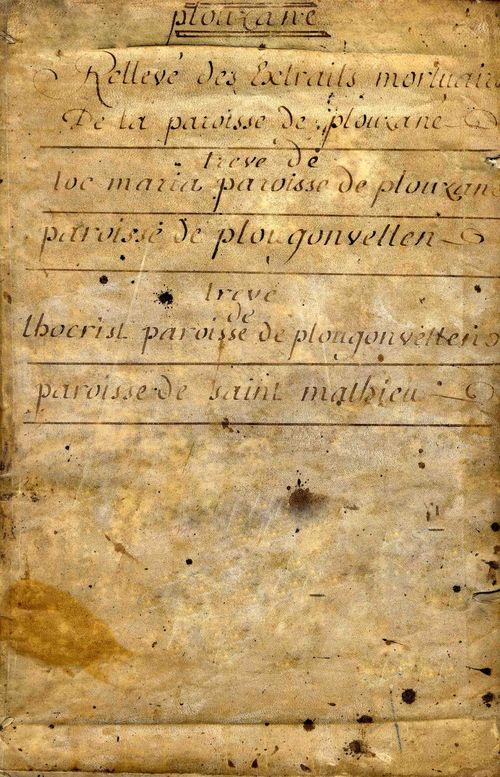 plouzané
Rellevé des Extraits mortuair
De la paroisse de plouzané
treve de
loc maria paroisse de plouzane
paroisse de plougonvellen
treve
de
lhocrist paroisse de plougonvellen
paroisse de saint mathieu